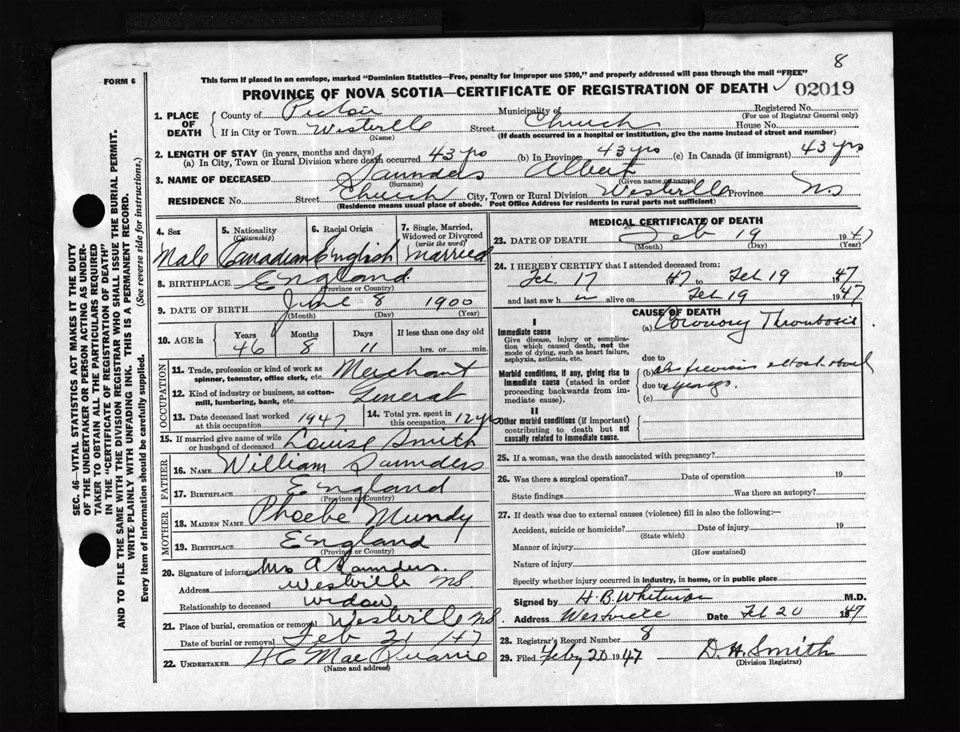 8
FORM 6
This form if placed in an envelope, marked "Dominion Statistics—Free, penalty for improper use $300," and properly addressed will pass through the mail "FREE"
PROVINCE OF NOVA SCOTIA—CERTIFICATE OF REGISTRATION OF DEATH 02019
SEC. 46—VITAL STATISTICS ACT MAKES IT THE DUTY
OF THE UNDERTAKER OR PERSON ACTING AS UNDER-
TAKER TO OBTAIN ALL THE PARTICULARS REQUIRED
IN THE "CERTIFICATE OF REGISTRATION OF DEATH"
AND TO FILE THE SAME WITH THE DIVISION REGISTRAR WHO SHALL ISSUE THE BURIAL PERMIT.
WRITE PLAINLY WITH UNFADING INK. THIS IS A PERMANENT RECORD.
Every item of information should be carefully supplied. (See reverse side for instructions.)
1. PLACE OF DEATH
County of Pictou Municipality of Registered No.
(For use of Registrar General only)
If in City or Town Westville Street Church House No.
(Name) (If death occurred in a hospital or institution, give the name instead of street and number)
2. LENGTH OF STAY (in years, months and days)
(a) In City, Town or Rural Division where death occurred 43 yrs (b) In Province 43 yrs (c) In Canada (if immigrant) 43 yrs
3. NAME OF DECEASED Saunders Albert
(Surname) (Given name or names)
RESIDENCE No. Street Church City, Town or Rural Division Westville Province NS
(Residence means usual place of abode. Post Office Address for residents in rural parts not sufficient)
4. Sex Male
5. Nationality (Citizenship) Canadian
6. Racial Origin English
7. Single, Married, Widowed or Divorced (write the word) Married
8. BIRTHPLACE England
(Province or Country)
9. DATE OF BIRTH June 8 1900
(Month) (Day) (Year)
10. AGE in Years 46 Months 8 Days 11 If less than one day old hrs. or min.
OCCUPATION
11. Trade, profession or kind of work as spinner, teamster, office clerk, etc. Merchant
12. Kind of industry or business, as cotton-mill, lumbering, bank, etc. General
13. Date deceased last worked at this occupation 1947
14. Total yrs. spent in this occupation 12 yrs
15. If married give name of wife or husband of deceased Louise Smith
FATHER
16. NAME William Saunders
17. BIRTHPLACE England
(Province or Country)
MOTHER
18. MAIDEN NAME Phoebe Mundy
19. BIRTHPLACE England
(Province or Country)
20. Signature of informant Mrs A Saunders
Address Westville NS
Relationship to deceased widow
21. Place of burial, cremation or removal Westville NS.
Date of burial or removal Feb 21 /47
22. UNDERTAKER H C MacQuarrie
(Name and address)
MEDICAL CERTIFICATE OF DEATH
23. DATE OF DEATH Feb 19 1947
(Month) (Day) (Year)
24. I HEREBY CERTIFY that I attended deceased from:
Feb. 17 47 to Feb 19 1947
and last saw h im alive on Feb 19 1947
CAUSE OF DEATH
I
Immediate cause
Give disease, injury or complication which caused death, not the mode of dying, such as heart failure, asphyxia, asthenia, etc.
(a) Coronary Thrombosis
due to
Morbid conditions, if any, giving rise to immediate cause (stated in order proceeding backwards from immediate cause).
(b) previous attack
due to years.
(c)
II
Other morbid conditions (if important) contributing to death but not causally related to immediate cause.
25. If a woman, was the death associated with pregnancy?
26. Was there a surgical operation? Date of operation 19
State findings Was there an autopsy?
27. If death was due to external causes (violence) fill in also the following:—
Accident, suicide or homicide? Date of injury 19
(State which)
Manner of injury
(How sustained)
Nature of injury
Specify whether injury occurred in industry, in home, or in public place
Signed by H. B. Whitman M.D.
Address Westville Date Feb 20 1947
28. Registrar's Record Number 8
29. Filed Feby 20 1947 D. H. Smith
(Division Registrar)